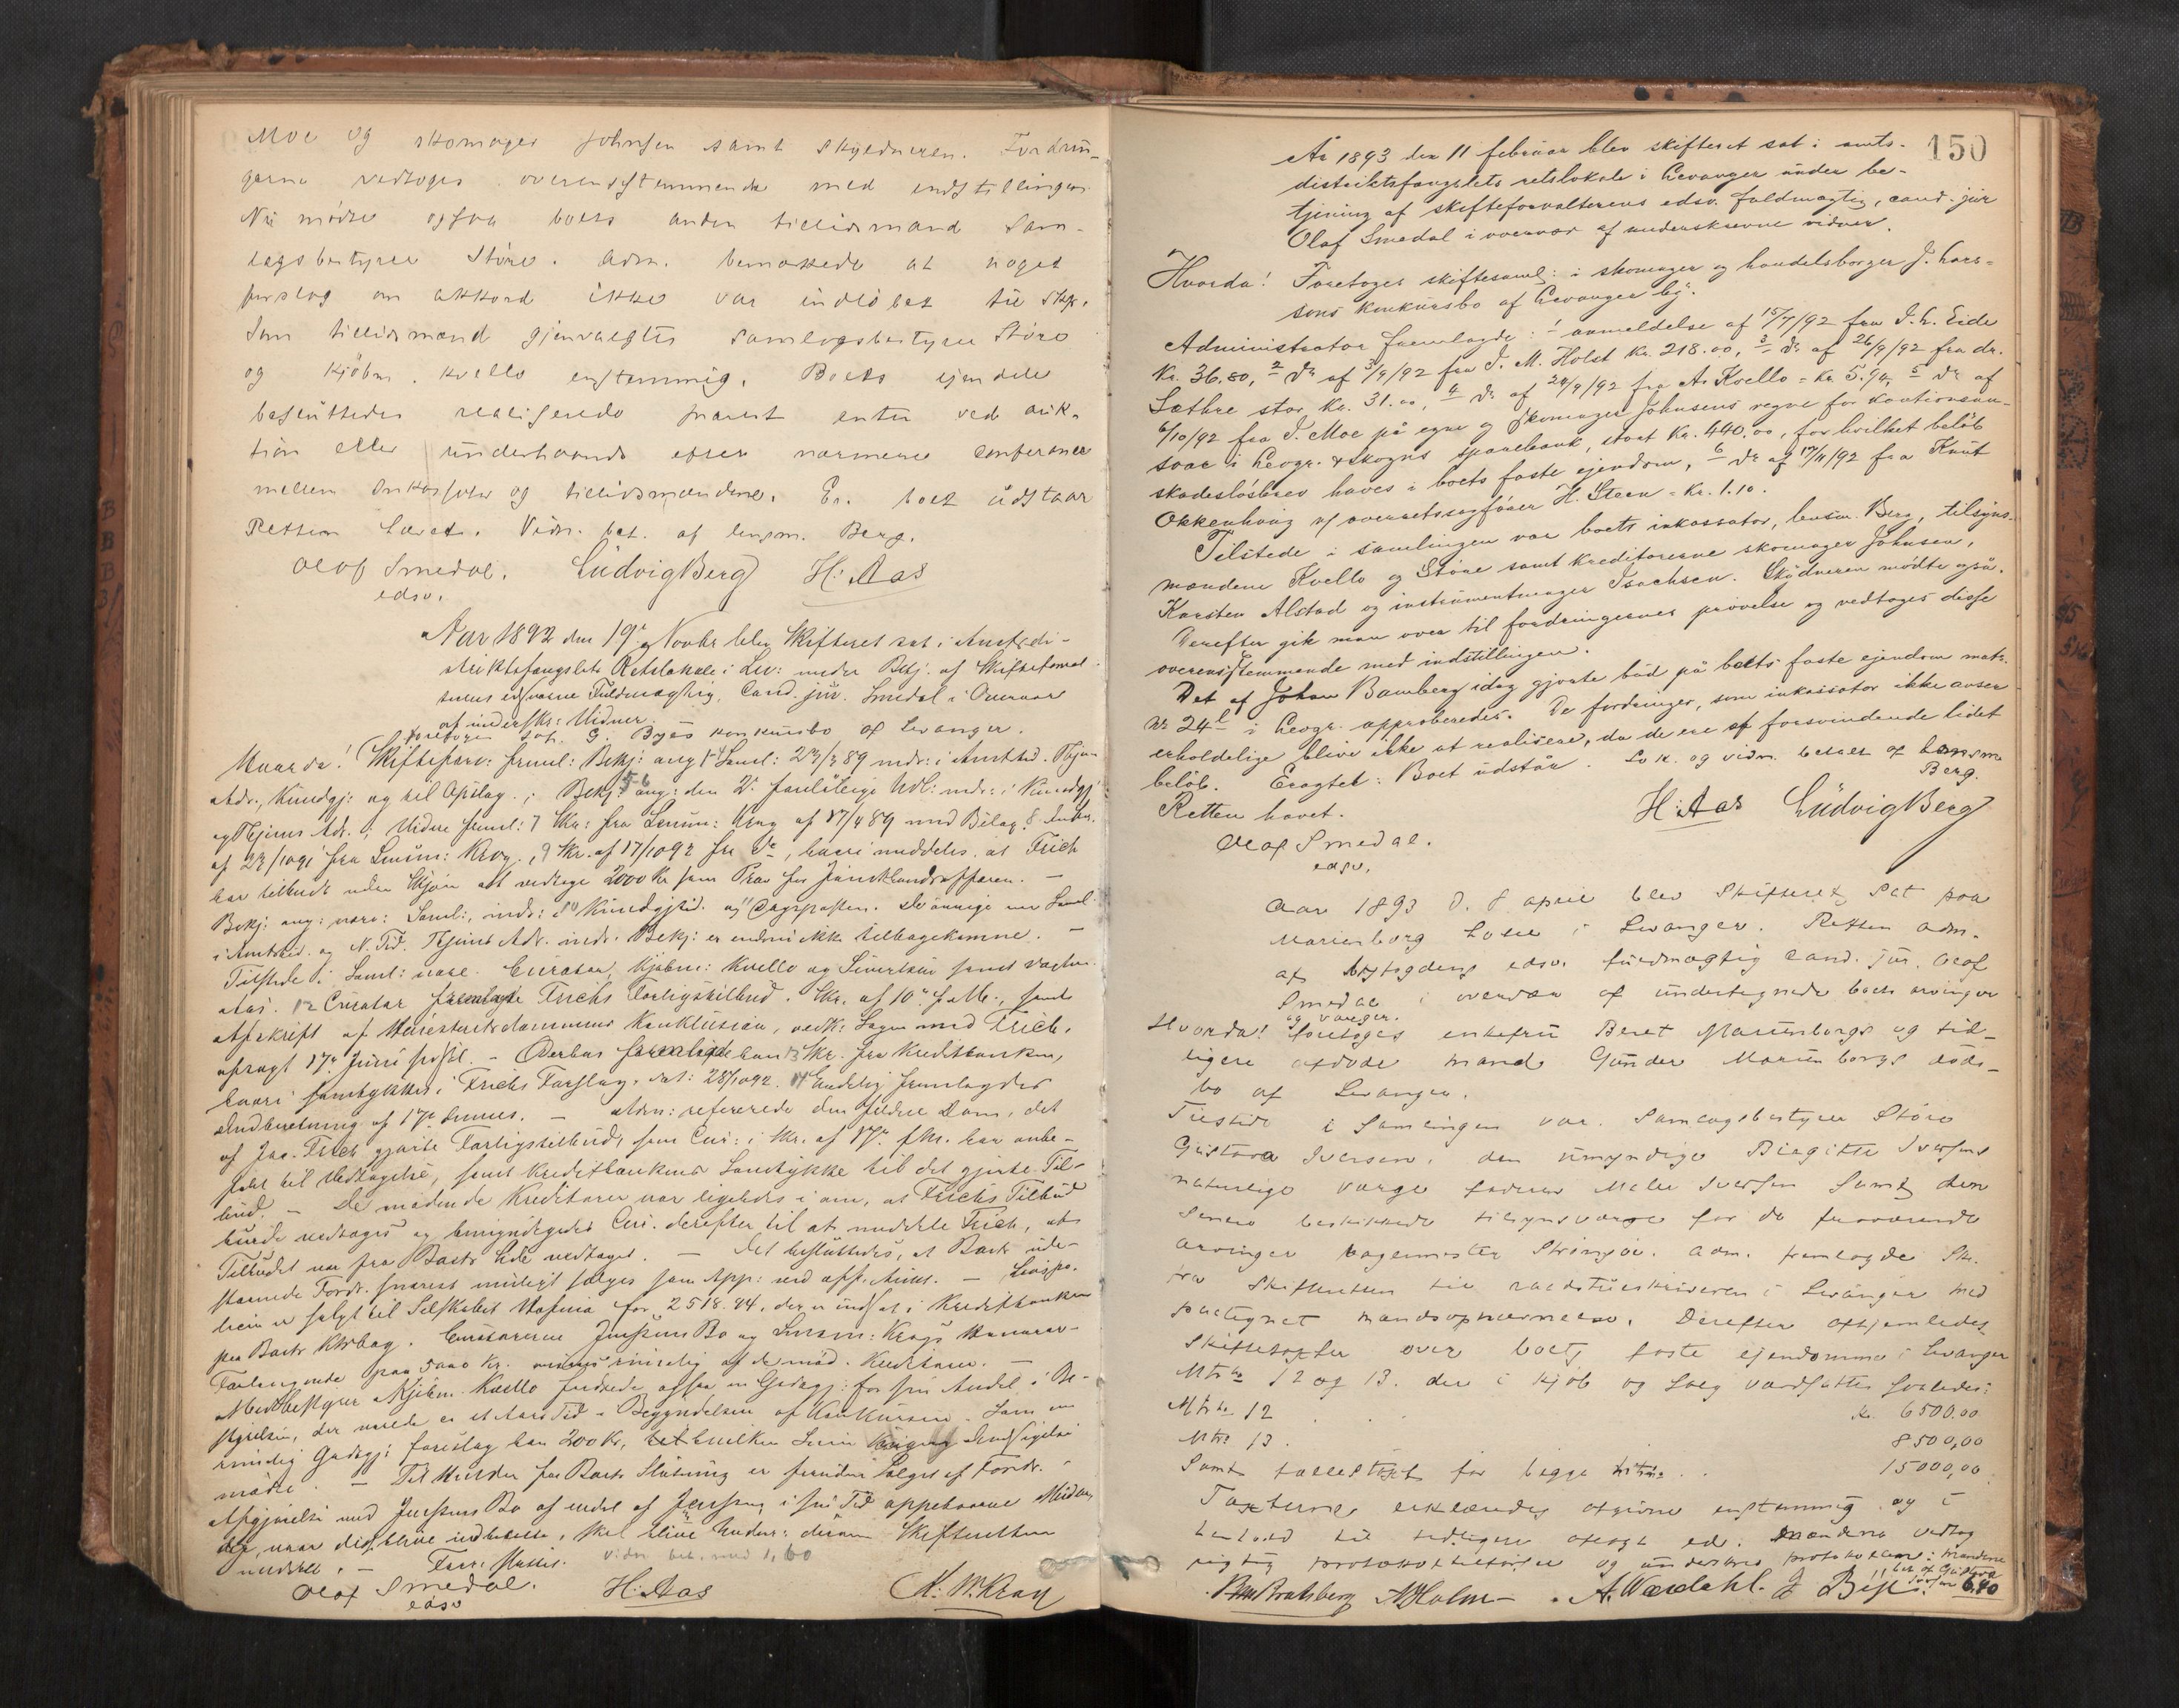 Moe og skomager Johnsen samt skyldneren. Fordrin-
gerne vedtoges overensstemmende med indstillingen.
Nu mødte ogsaa boets anden tillidsmand Sam-
lagsbestyrer Støre. Adm. bemærkede at noget
forslag om akkord ikke var indløbet til Skr.
Som tillidsmænd gjenvalgtes Samlagsbestyrer Støre
og Kjøbm. Kvello enstemmig. Boets eiendele
besluttedes realiserede snarest enten ved auk-
tion eller underhaande efter nærmere conferance
mellem Inkassator og tillidsmændene. Er. boet udstaar
Retten hævet. Vidn. bet. af lensm. Berg.
Olaf Smedal. Ludvig Berg H: Aas
edsv.
Aar 1892 den 19de Novbr blev Skifteret sat i Amtsdi-
striktsfængslets Retslokale i Lev: under Betj. af Skifteforval-
terens edsvorne Fuldmægtig, Cand. jur. Smedal i Overvær
af underskr: Vidner.
Foretoges Joh. G. Byes konkursbo af Levanger.
Hvorda! Skifteforv: freml: Bekj: ang 1st Saml: 23/3 89 indr: i Amtstid. Thjems
Adr., Kundgj: og til Opslag. ; Bekj: ang: den 2de foreløbige Udl: indr: i Kundgj
og Thjems Adr. ; Videre freml: 7 Skr: fra Lensm: Krog af 17/4 89 med Bilag 8 Anm.
af 27/10 91 fra Lensm: Krog, 9 Skr. af 17/10 92 fra do, hvori meddeles at Frich
har tilbudt uden Skjøn at vedtage 2000 Kr som Prov for Jämtlandsaffæren. —
Bekj: ang: nærv: Saml:, indr: i 10 Kundgjtid. og 11 Dagsposten. De øvrige om Saml:
i Amtstid. og N. Tid. Thjems Adr. indr. Bekj: er endnu ikke tilbagekomne. —
Tilstede i Saml: vare Curator, Kjøbm: Kvello og Sivertsen samt
Aas. 12 Curator fremlagde Frichs Forligstilbud. Skr. af 10de f. M., samt
Afskrift af Høiesteretsdommens Konklusion, vedk: Sagen med Frich,
afsagt 17de Juni sidstl. — Derhos fremlagde han 13 Skr. fra Kreditbanken,
hvori samtykkes i Frichs Forslag, dat: 28/10 92. 14 Endelig fremlagdes
Indberetning af 17de dennes. — Adm: refererede den fældne Dom, det
af Jac. Frich gjorte Forligstilbud, som Cur: i Skr. af 17de f. M. har anbe-
falet til Vedtagelse, samt Kreditbankens Samtykke til det gjorte Til-
bud. — De mødende Kreditorer var ligeledes i om, at Frichs Tilbud
burde vedtages og bemyndigedes Cur. derefter til at meddele Frich, at
Tilbudet var fra Boets Side vedtaget. — Det besluttedes, at Boets ude-
staaende Fordr. snarest muligst sælges som App: ved off. Aukt. —
er solgt til Selskabet Hafnia for 2518.44, der er indsat i Kreditbanken
paa Boets Ktrbog. Curatorerne Jenssens Bo og Lensm: Krogs Honorar-
Forlangende paa 5000 Kr. ansaaes rimelig af de mød. Kreditorer. —
Medbestyrer Kjøbm. Kvello fordrede ogsaa en Godtgj: for sin Andel i Be-
styrelsen, der varede et Aars Tid i Begyndelsen af Konkursen. Som en
rimelig Godtgj: foreslog han 200 Kr, mod hvilken Sum ingen Indsigelse
mødte. — Til Hinder for Boets Slutning er foruden Salget af Fordr.
Afgjørelse med Jenssens Bo af endel af Jenssen i sin Tid oppebaarne Midler,
der, naar disse blive indbetalte, skal blive Underr: derom Skifteretten
meddelt. — Forr: Sluttet. Vidn. bet. med 1,60
Olaf Smedal. H: Aas K. W. Krog
edsv
150
År 1893 den 11 februar blev skifteret sat i amts-
distriktsfængslets retslokale i Levanger under be-
tjening af skifteforvalterens edsv. fuldmægtig, cand. jur
Olaf Smedal i overvær af underskrevne vidner.
Hvorda! Foretoges skiftesaml: i skomager og handelsborger J. Lars-
sens konkursbo af Levanger by.
Administrator fremlagde: 1 anmeldelse af 15/9/92 fra I. L. Eide
Kr. 36,80, 2 do af 3/9/92 fra J. M. Holst Kr. 218.00, 3 do af 26/9/92 fra dr.
Sæthre stor Kr. 31.00, 4 do af 28/9/92 fra A. Kvello = Kr 5.90, 5 do af
6/10/92 fra J. Moe på egne og skomager Johnsens vegne for kautionsan-
svar i Levgr. & skogns sparebank, stort Kr. 440.00, for hvilket beløb
skadesløsbrev haves i boets faste ejendom, 6 do af 17/11/92 fra Knut
Okkenhoug v/ overretssagfører H. Steen = Kr. 1.10.
Tilstede i samlingen var boets inkassator, lensm. Berg, tilsyns-
mændene Kvello og Støre samt kreditorerne skomager Johnsen,
Karsten Alstad og instrumentmager Isachsen. Skyldneren mødte også.
Derefter gik man over til fordringernes prøvelse og vedtoges disse
overensstemmende med indstillingen.
Det af Johan Bamberg idag gjorte bud på boets faste ejendom matr.
No 24 i Levgr. approberedes. De fordringer, som inkassator ikke anser
erholdelige blive ikke at realisere, da de ere af forsvindende lidet
beløb. Eragtet: Boet udstår. Lok. og vidn. betalt af lensm
Berg.
Retten hævet. H: Aas Ludvig Berg
Olaf Smedal.
edsv.
Aar 1893 d. 8 april blev Skifteret sat paa
Marienborg Løkke i Levanger. Retten adm.
af byfogdens edsv. fuldmægtig cand. jur. Olaf
Smedal i overvær af undertegnede boets arvinger
og værger.
Hvorda! foretoges enkefru Beret Marienborgs og tid-
ligere afdøde mand Gunder Marienborgs døds-
bo af Levanger.
Tilstede i Samlingen var Samlagsbestyrer Støre
Gustava Iversen, den umyndige Birgitte Iversens
naturlige værge faderen Iversen samt den
senere beskikkede tilsynsværge for de fraværende
arvinger bagermester Strømsøe. Adm. fremlagde Skr.
fra Skifteretten til raadstueskriveren i Levanger med
paategnet mandsopnævnelse. Derefter afhjemledes
Skiftetaxter over boets faste ejendomme i Levanger
Mtr No 12 og 13. der i kjøb og Salg værdsattes saaledes:
Mtr No 12 Kr. 6500.00
Mtr 13. 8500,00
Samt fællestaxt for begge mtr.no . . 15000,00
Taxterne erklæredes afgivne enstemmig og i
henhold til tidligere aflagt ed. Mændene vedtog
rigtig protokoltilførsel og underskrev protokollen: Mændene
bet. af Gustava
Iversen 6.40
Bratsberg A Holm A. Værdahl. J Bye.